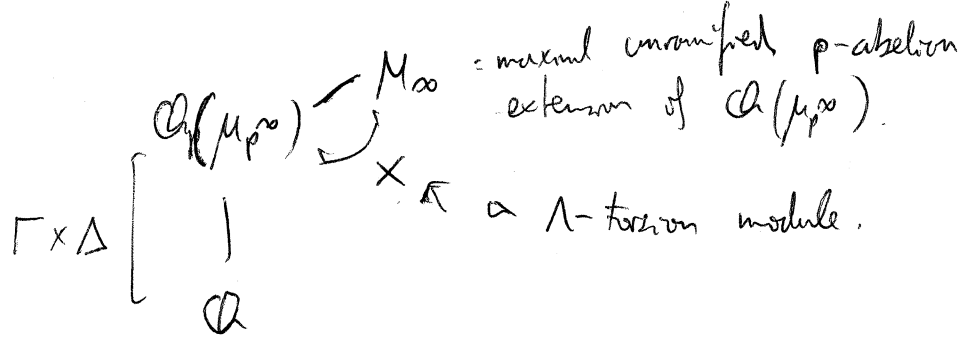 M∞ = maximal unramified p-abelian
extension of ℚ(μ_p^∞).
ℚ(μ_p^∞)
X ↖ a Λ-torsion module.
Γ × Δ
ℚ